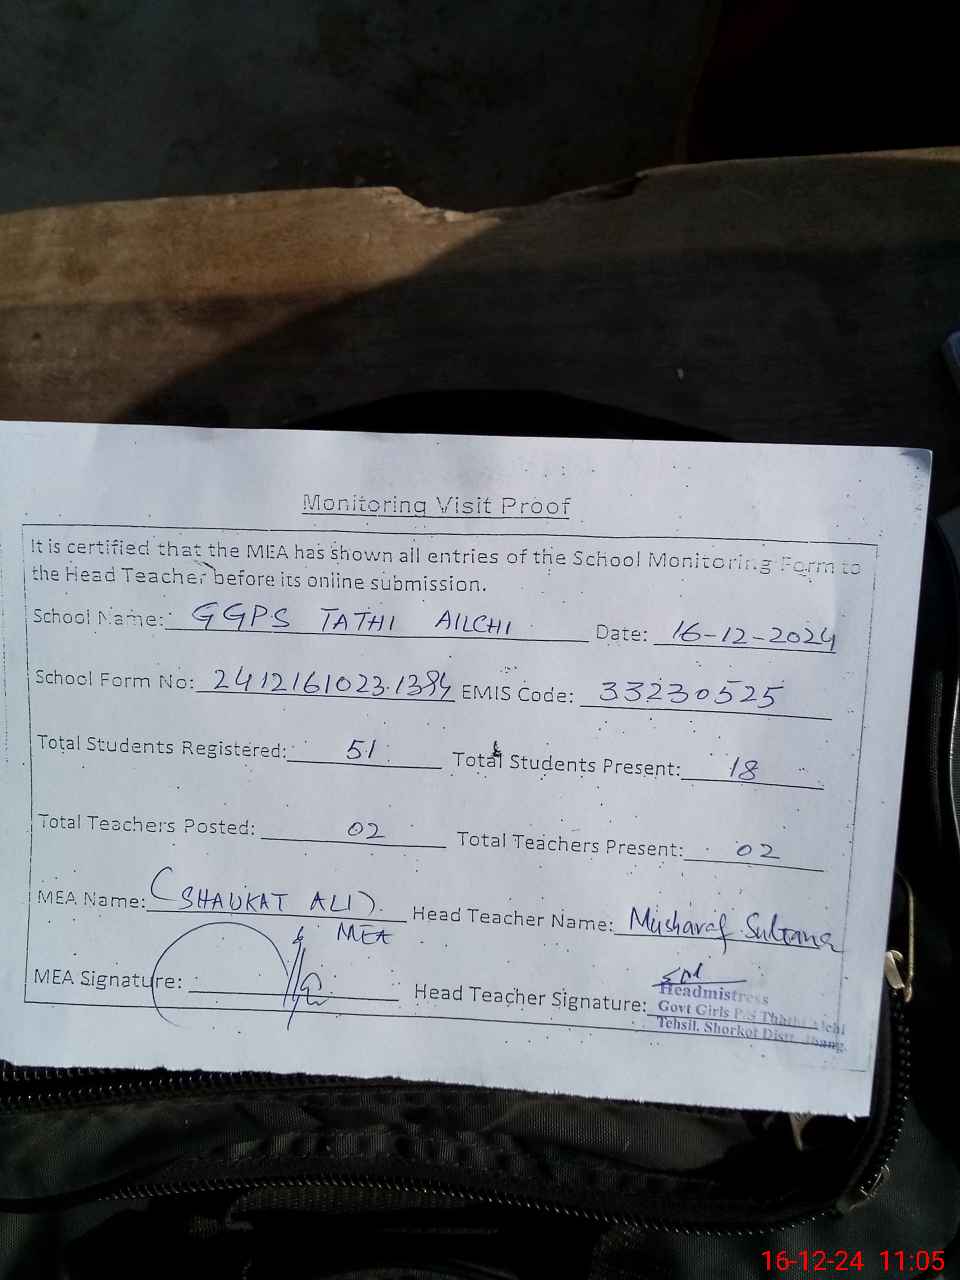 Monitoring Visit Proof
It is certified that the MEA has shown all entries of the School Monitoring Form to
the Head Teacher before its online submission.
School Name: GGPS TATHI AILCHI Date: 16-12-2024
School Form No: 2412161023.1394 EMIS Code: 33230525
Total Students Registered: 51 Total Students Present: 18
Total Teachers Posted: 02 Total Teachers Present: 02
MEA Name: (SHAUKAT ALI) Head Teacher Name: Musharaf Sultana
MEA
MEA Signature: Head Teacher Signature:
Headmistress
Govt Girls P/S Thathi
Tehsil. Shorkot Distt. Jhang.
16-12-24 11:05